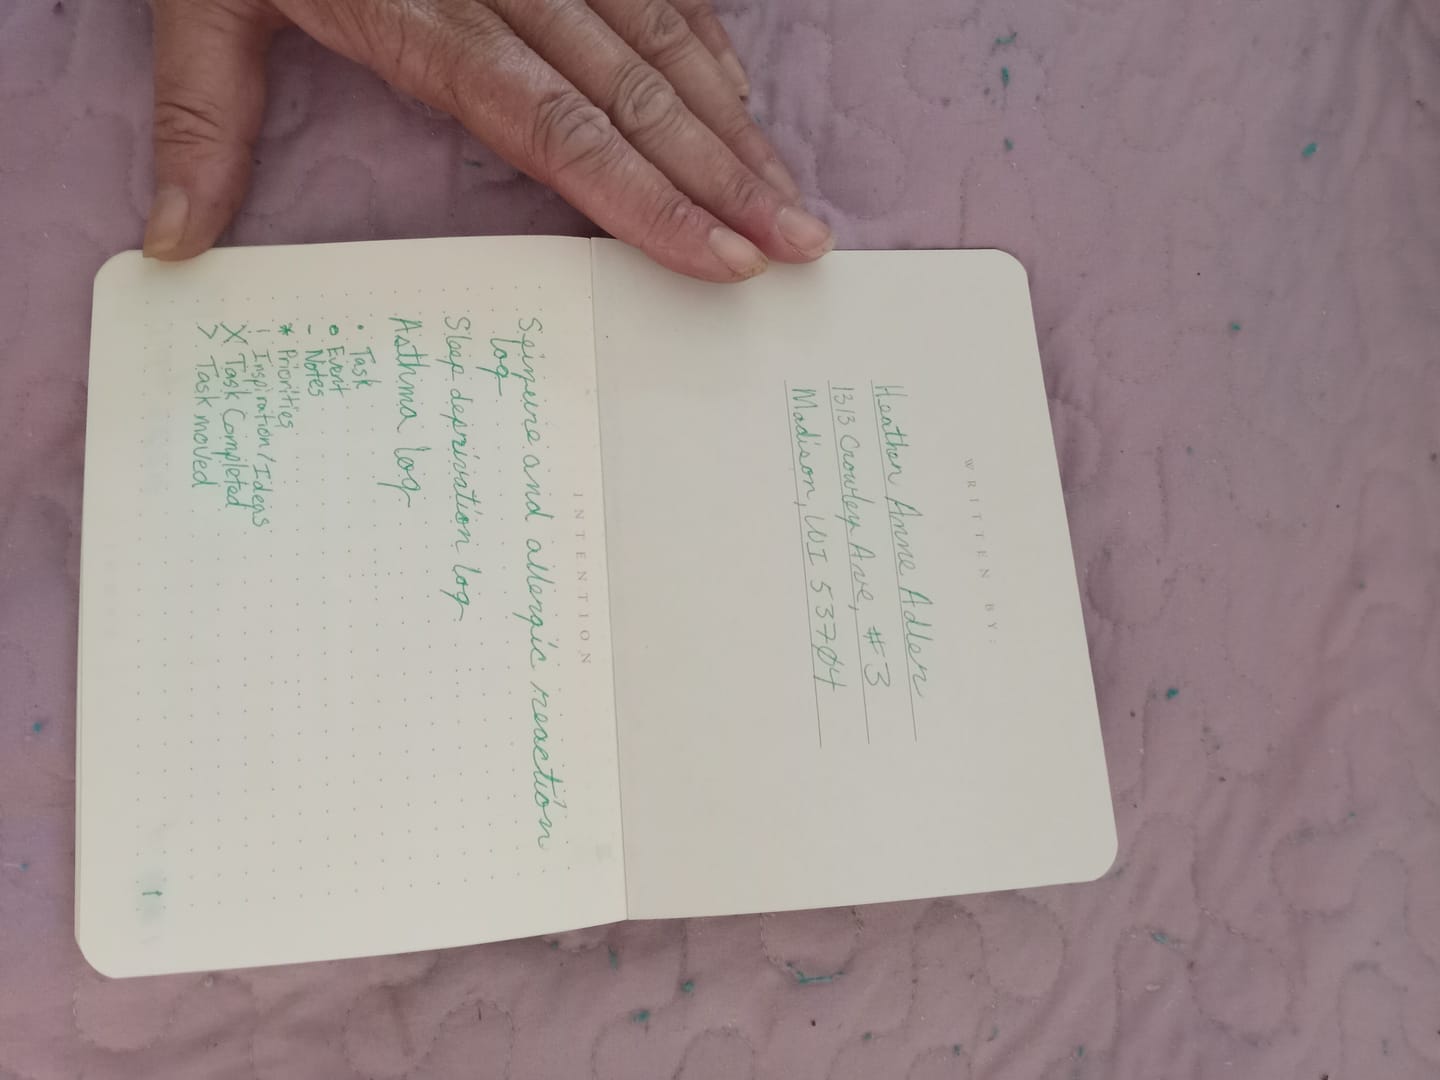 WRITTEN BY:
Heather Anne Adler
1313 Crowley Ave, #3
Madison, WI 53704
INTENTION
Seizure and allergic reaction
log
Sleep deprivation log
Asthma log
• Task
o Event
- Notes
* Priorities
! Inspiration/Ideas
X Task Completed
> Task moved
1